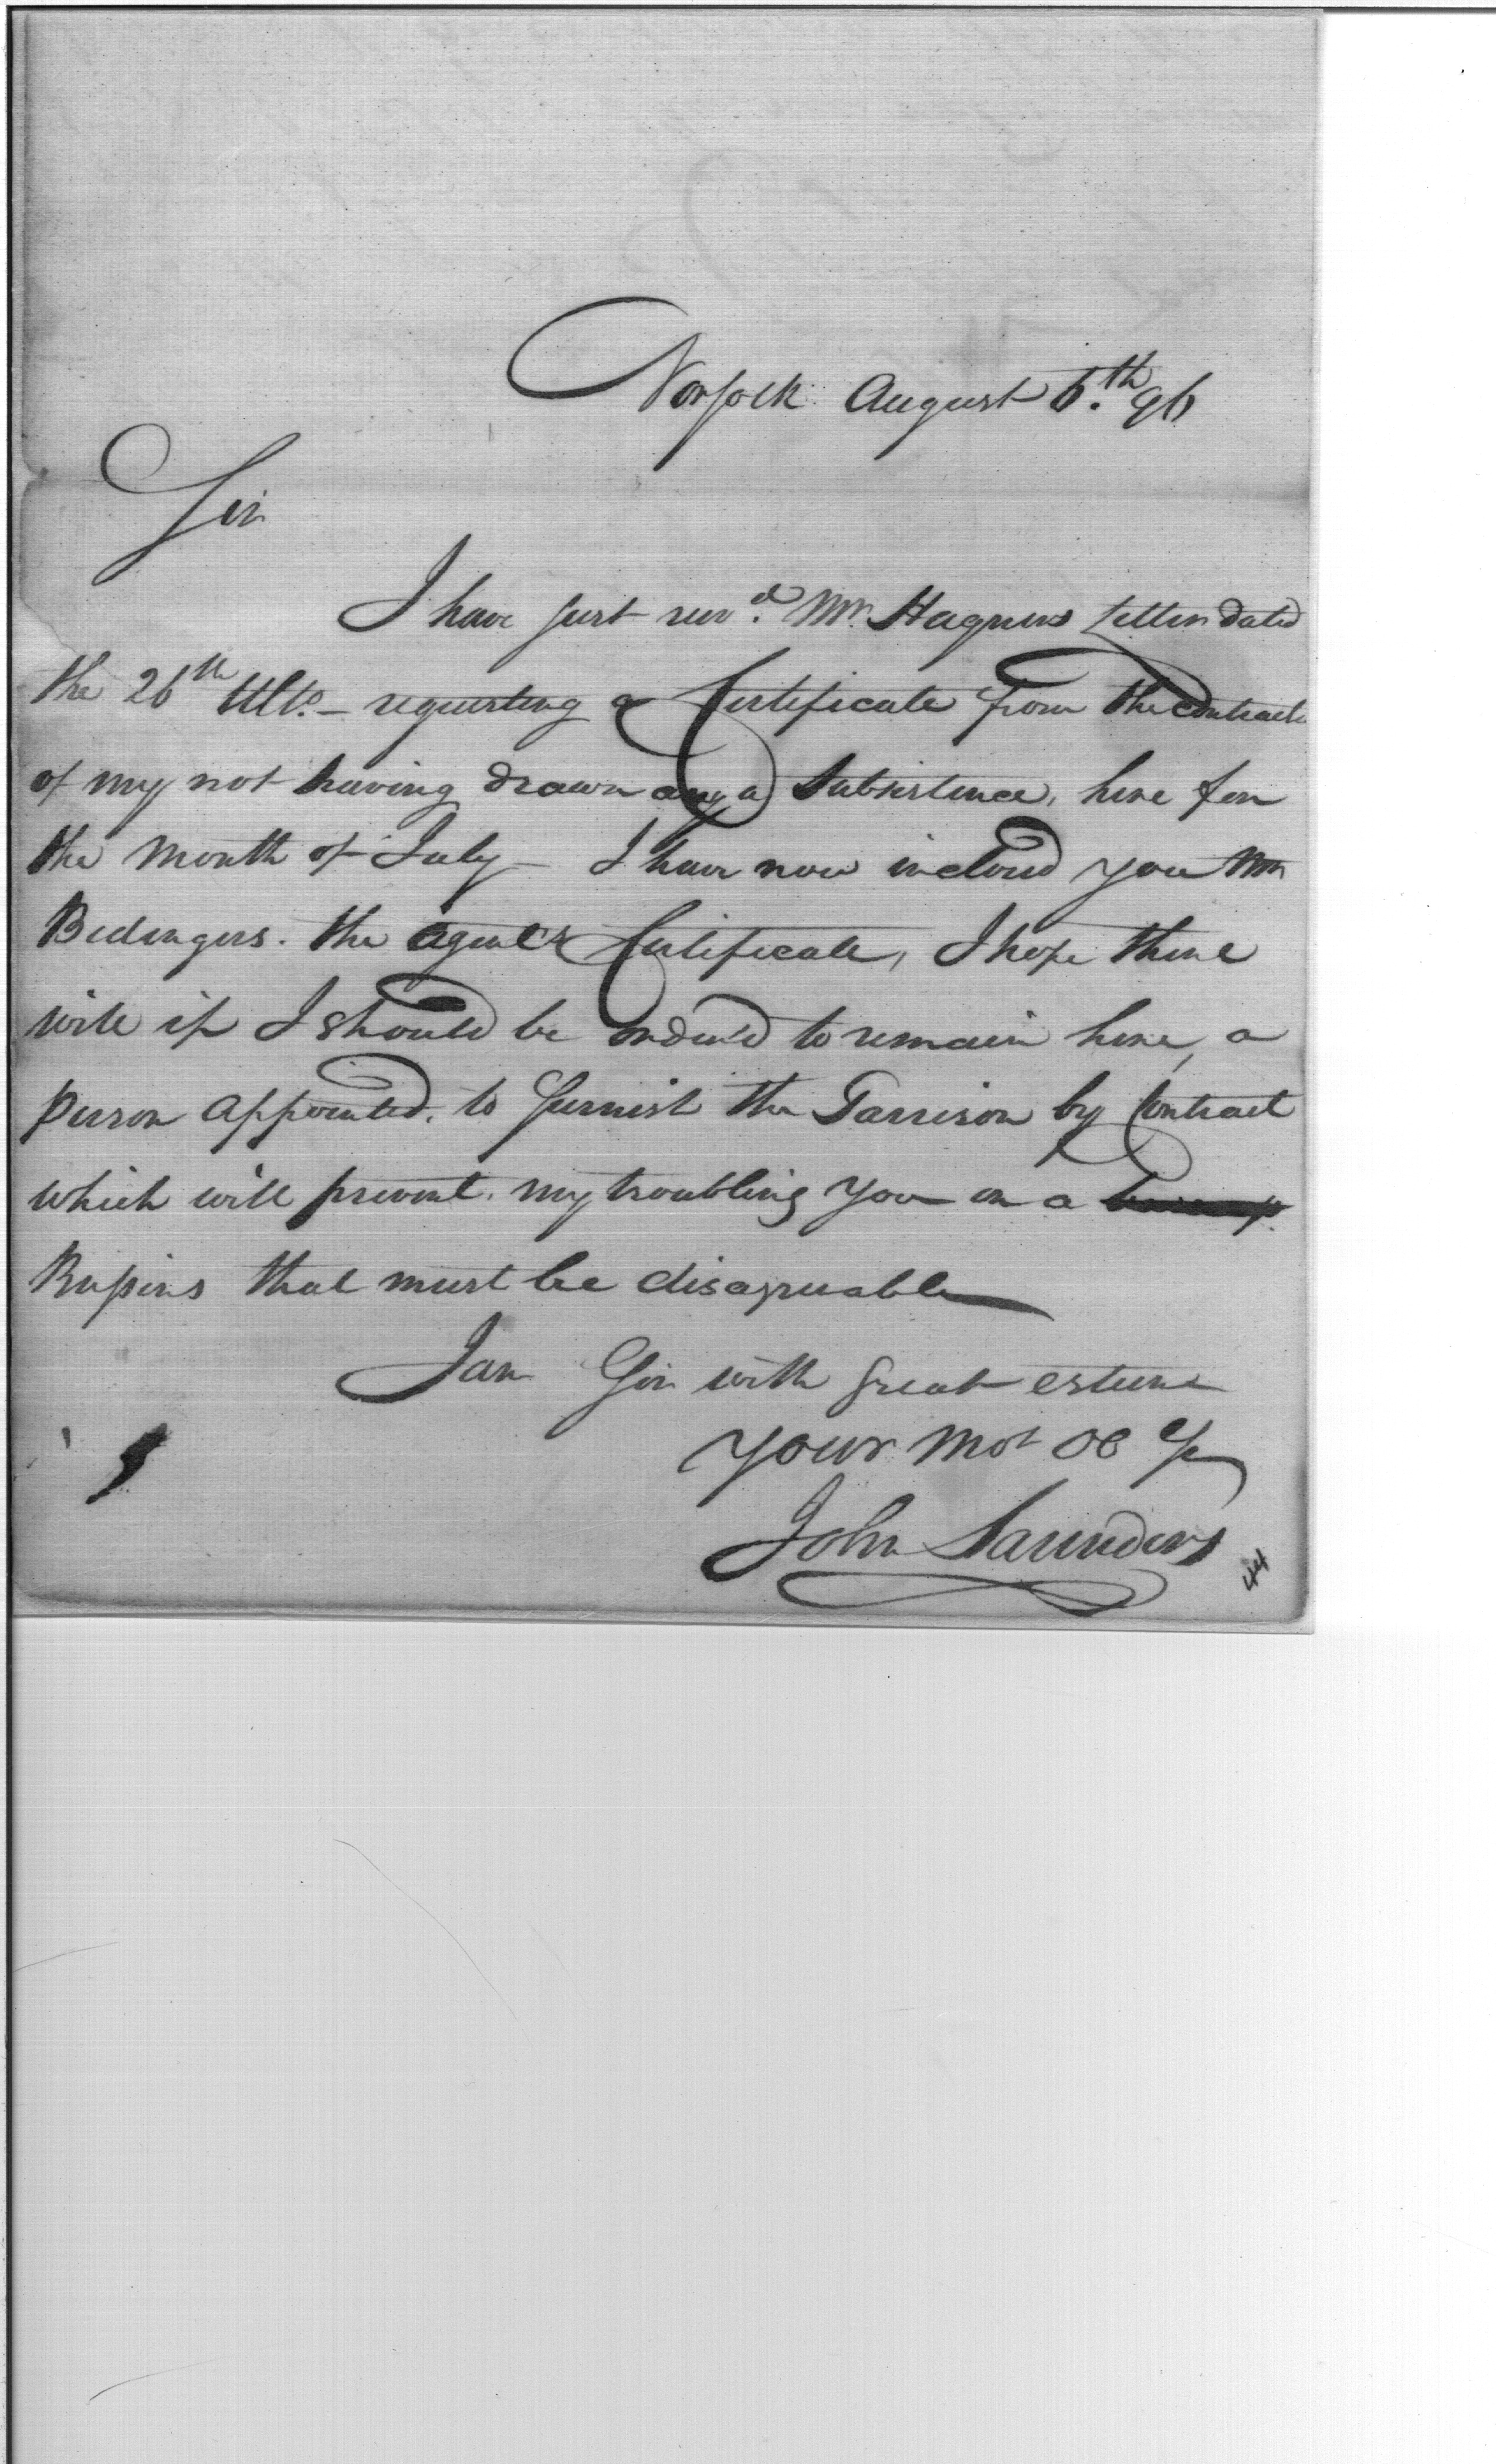 Norfolk August 6.th 96
Sir
I have just recvd. Mr. Hagners Letter dated
the 26th Ulto. – requesting a Certificate from the Contract
of my not having drawn any Subsistence, here for
the Month of July – I have now inclosed you Mr
Bedingers. the agent's Certificate, I hope there
will if I should be order'd to remain here, a
person appointed. to furnish the Garrison by Contract
which will prevent. my troubling you on a
Bussins that must be disagreable
I am Sir with great esteem
your Mot Ob &c
John Saunders
44